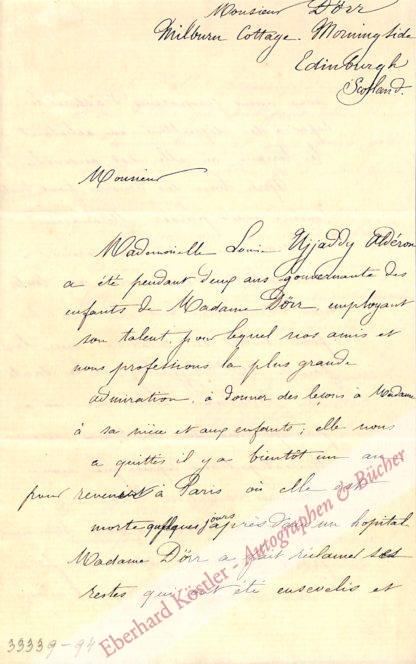 Monsieur Dörr
Milburn Cottage. Morningside
Edinburgh
Scotland.
Monsieur
Mademoiselle Louise Aldéron
a été pendant deux ans gouvernante des
enfants de Madame Dörr, employant
son talent, pour lequel nos amis et
nous professions la plus grande
admiration, à donner des leçons à Madame
à sa nièce et aux enfants; elle nous
a quittés il y a bientôt un an
pour revenir à Paris où elle est
morte quelques jours après dans un hôpital
Madame Dörr a fait réclamer ses
restes qui ont été ensevelis et
Eberhard Köstler - Autographen & Bücher
33339-94